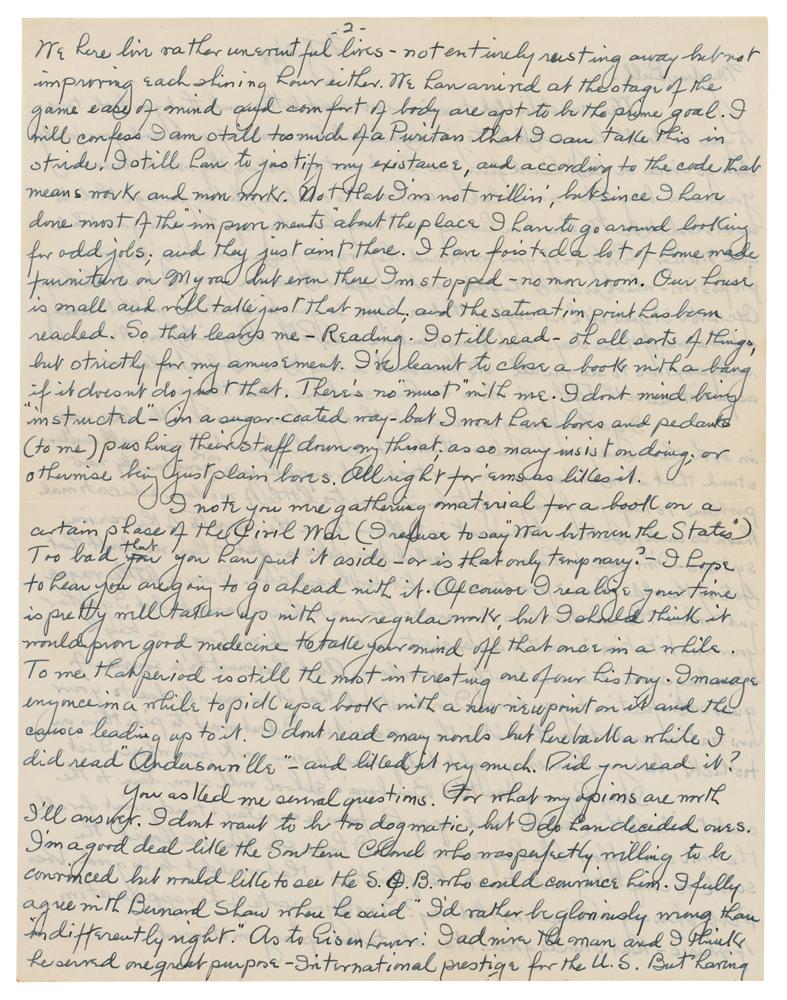 -2-
We here live rather uneventful lives - not entirely rusting away but not
improving each shining hour either. We have arrived at the stage of the
game ease of mind and comfort of body are apt to be the prime goal. I
will confess I am still too much of a Puritan that I can take this in
stride. I still have to justify my existance, and according to the code that
means work and more work. Not that I'm not willin', but since I have
done most of the "improvements" about the place I have to go around looking
for odd jobs; and they just ain't there. I have foisted a lot of home made
furniture on Myra but even there I'm stopped - no more room. Our house
is small and will take just that much; and the saturation point has been
reached. So that leaves me - Reading. I still read - oh all sorts of things,
but strictly for my amusement. I've learnt to close a book with a bang
if it doesnt do just that. There's no "must" with me. I dont mind being
"instructed" - in a sugar-coated way - but I wont have bores and pedants
(to me) pushing their stuff down my throat; as so many insist on doing; or
otherwise being just plain bores. All right for 'em as likes it.
I note you were gathering material for a book on a
certain phase of the Civil War (I refuse to say "War between the States")
Too bad that you have put it aside - or is that only temporary? - I hope
to hear you are going to go ahead with it. Of course I realize your time
is pretty well taken up with your regular work, but I should think it
would prove good medicine to take your mind off that once in a while.
To me that period is still the most interesting one of our history. I manage
every once in a while to pick up a book with a new viewpoint on it and the
causes leading up to it. I dont read many novels but here back a while I
did read "Andersonville" - and liked it very much. Did you read it?
You asked me several questions. For what my opions are worth
I'll answer. I dont want to be too dogmatic, but I do have decided ones.
I'm a good deal like the Southern Colonel who was perfectly willing to be
convinced but would like to see the S.O.B. who could convince him. I fully
agree with Bernard Shaw when he said "I'd rather be gloriously wrong than
"indifferently right." As to Eisenhower: I admire the man and I think
he served one great purpose - International prestige for the U.S. But having